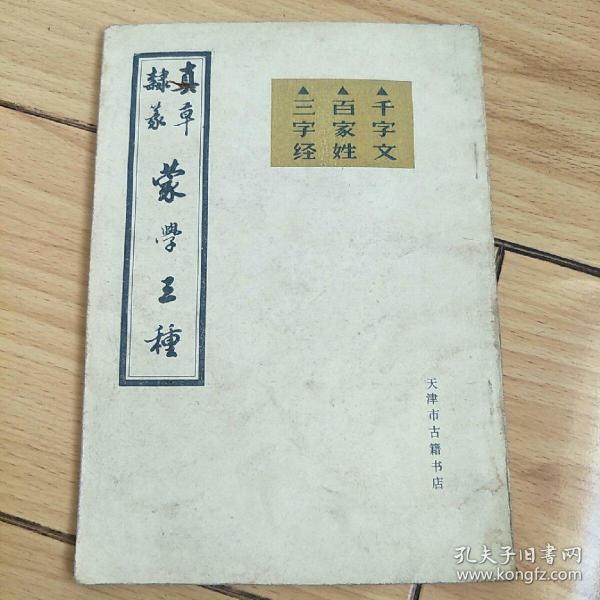 真草
隸篆
蒙學三種
▲千字文
▲百家姓
▲三字经
天津市古籍书店
孔夫子旧书网
www.kongfz.com